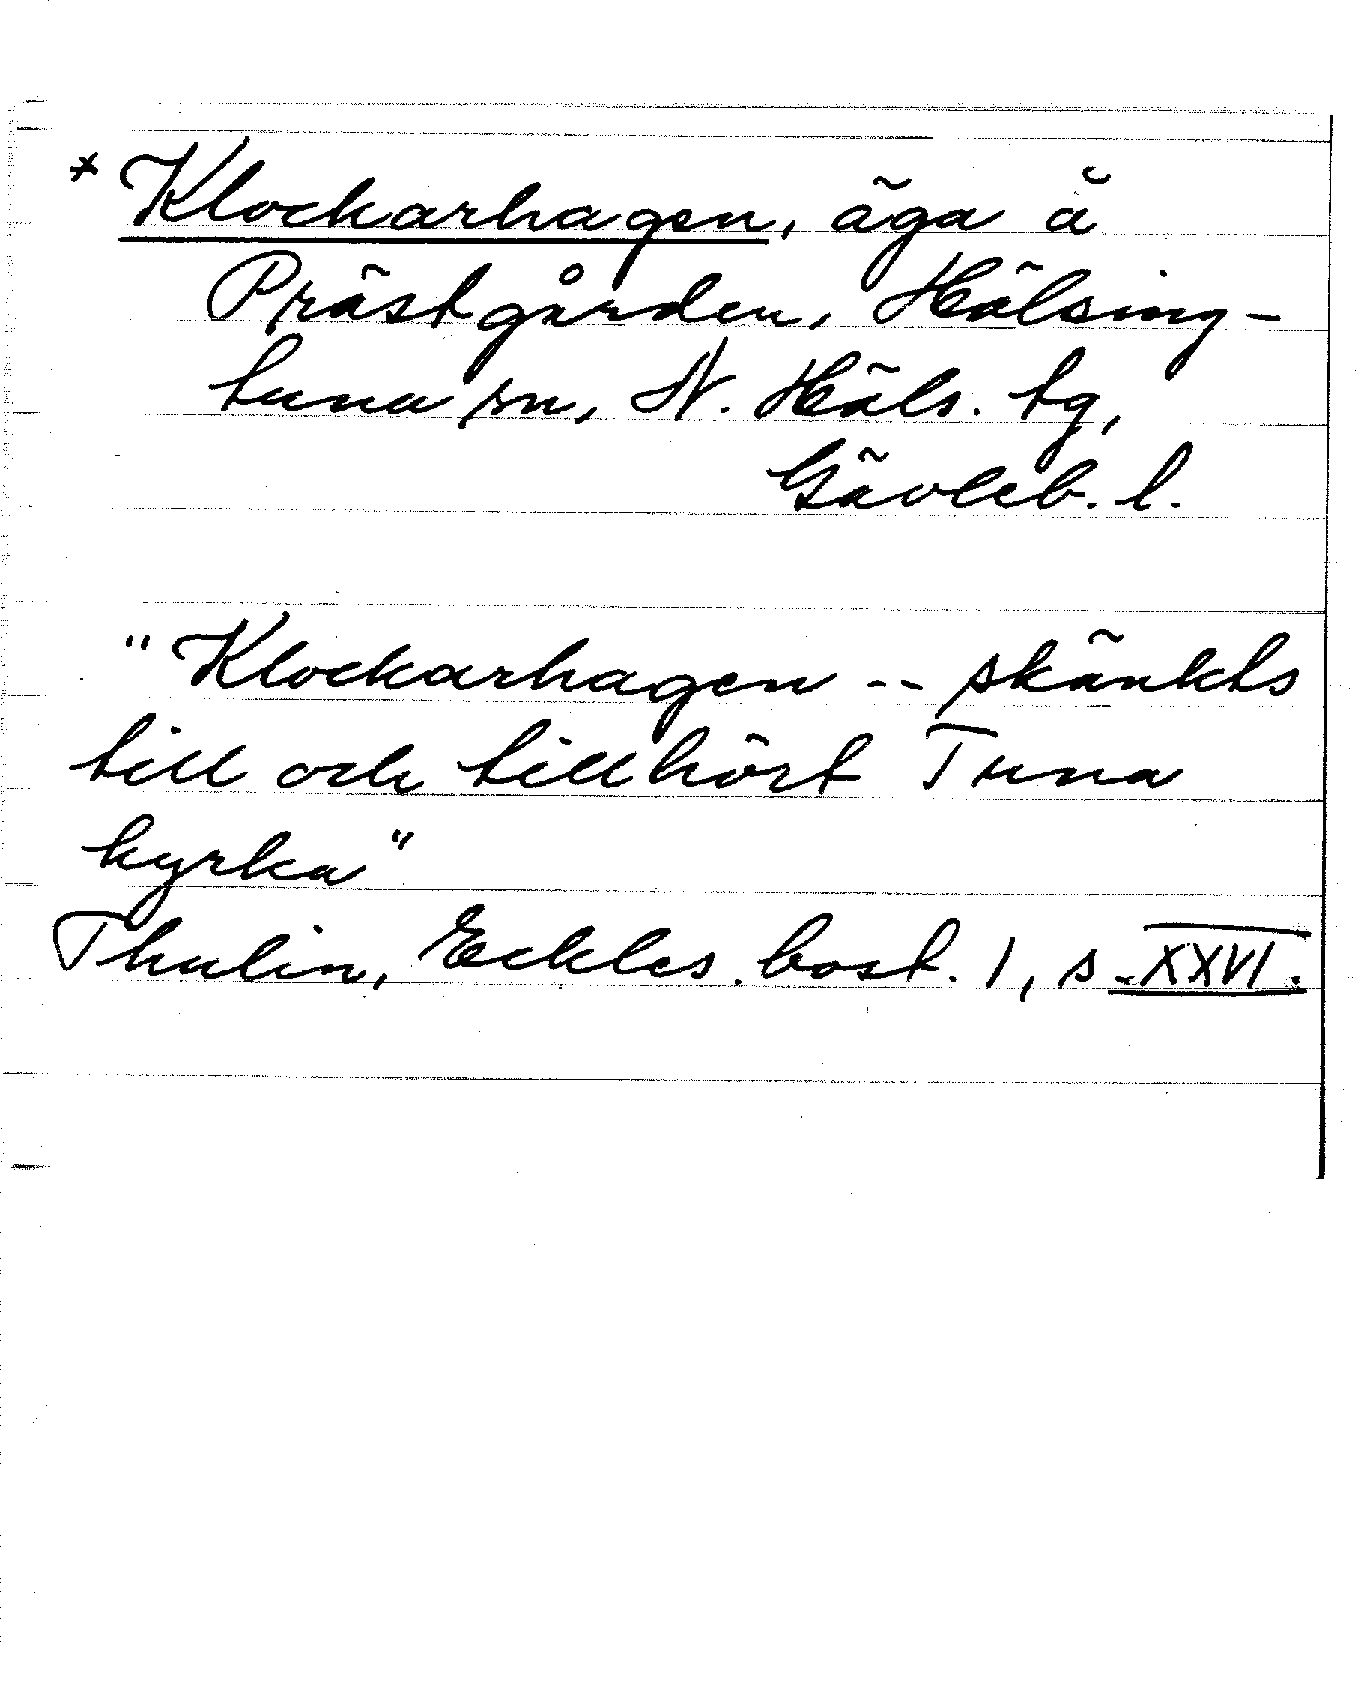 * Klockarhagen, äga å
Prästgården, Hälsing-
tuna sn, N. Häls. tg,
Gävleb. l.
"Klockarhagen -- skänkts
till och tillhört Tuna
kyrka"
Thulin, Eckles. bost. 1, s. XXVI.